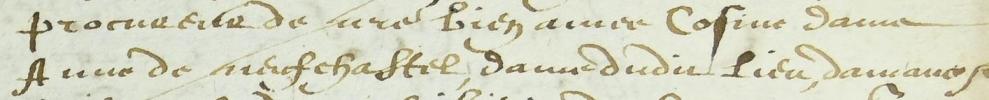 procureur de n̄re bien amee Cosine dame
Anne de neufchastel, dame dudit lieu, damance